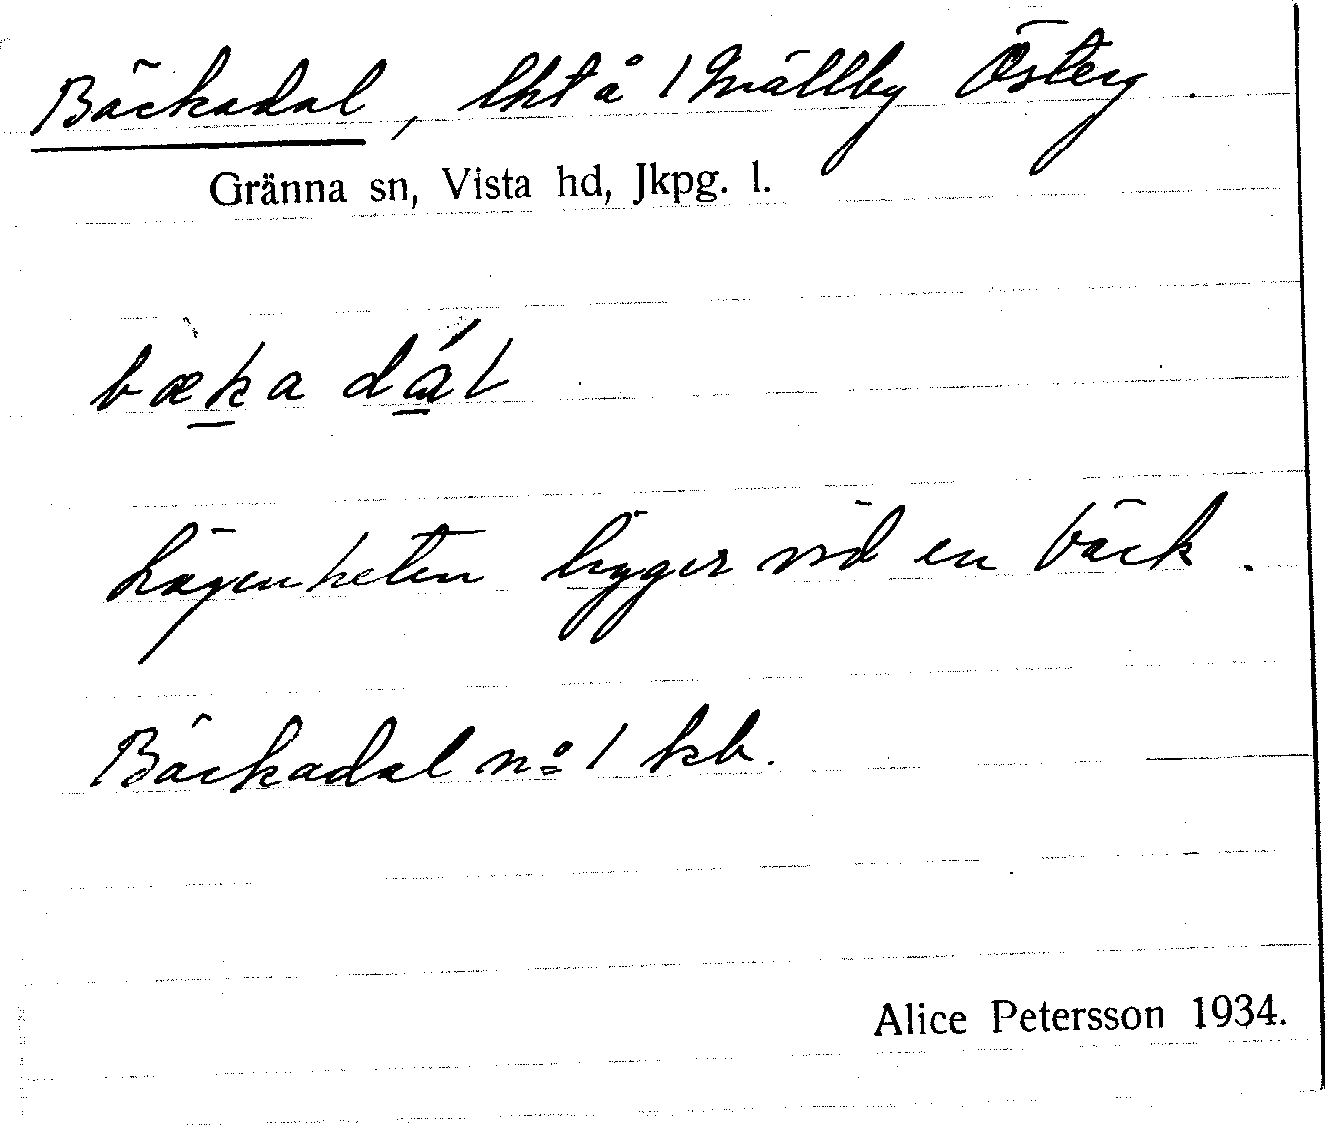 Bäckadal, lht å 1 Mällby Österg.
Gränna sn, Vista hd, Jkpg. l.
bæ̀ḵa dá̱l
Lägenheten ligger vid en bäck.
Bäckadal nº 1 kb.
Alice Petersson 1934.